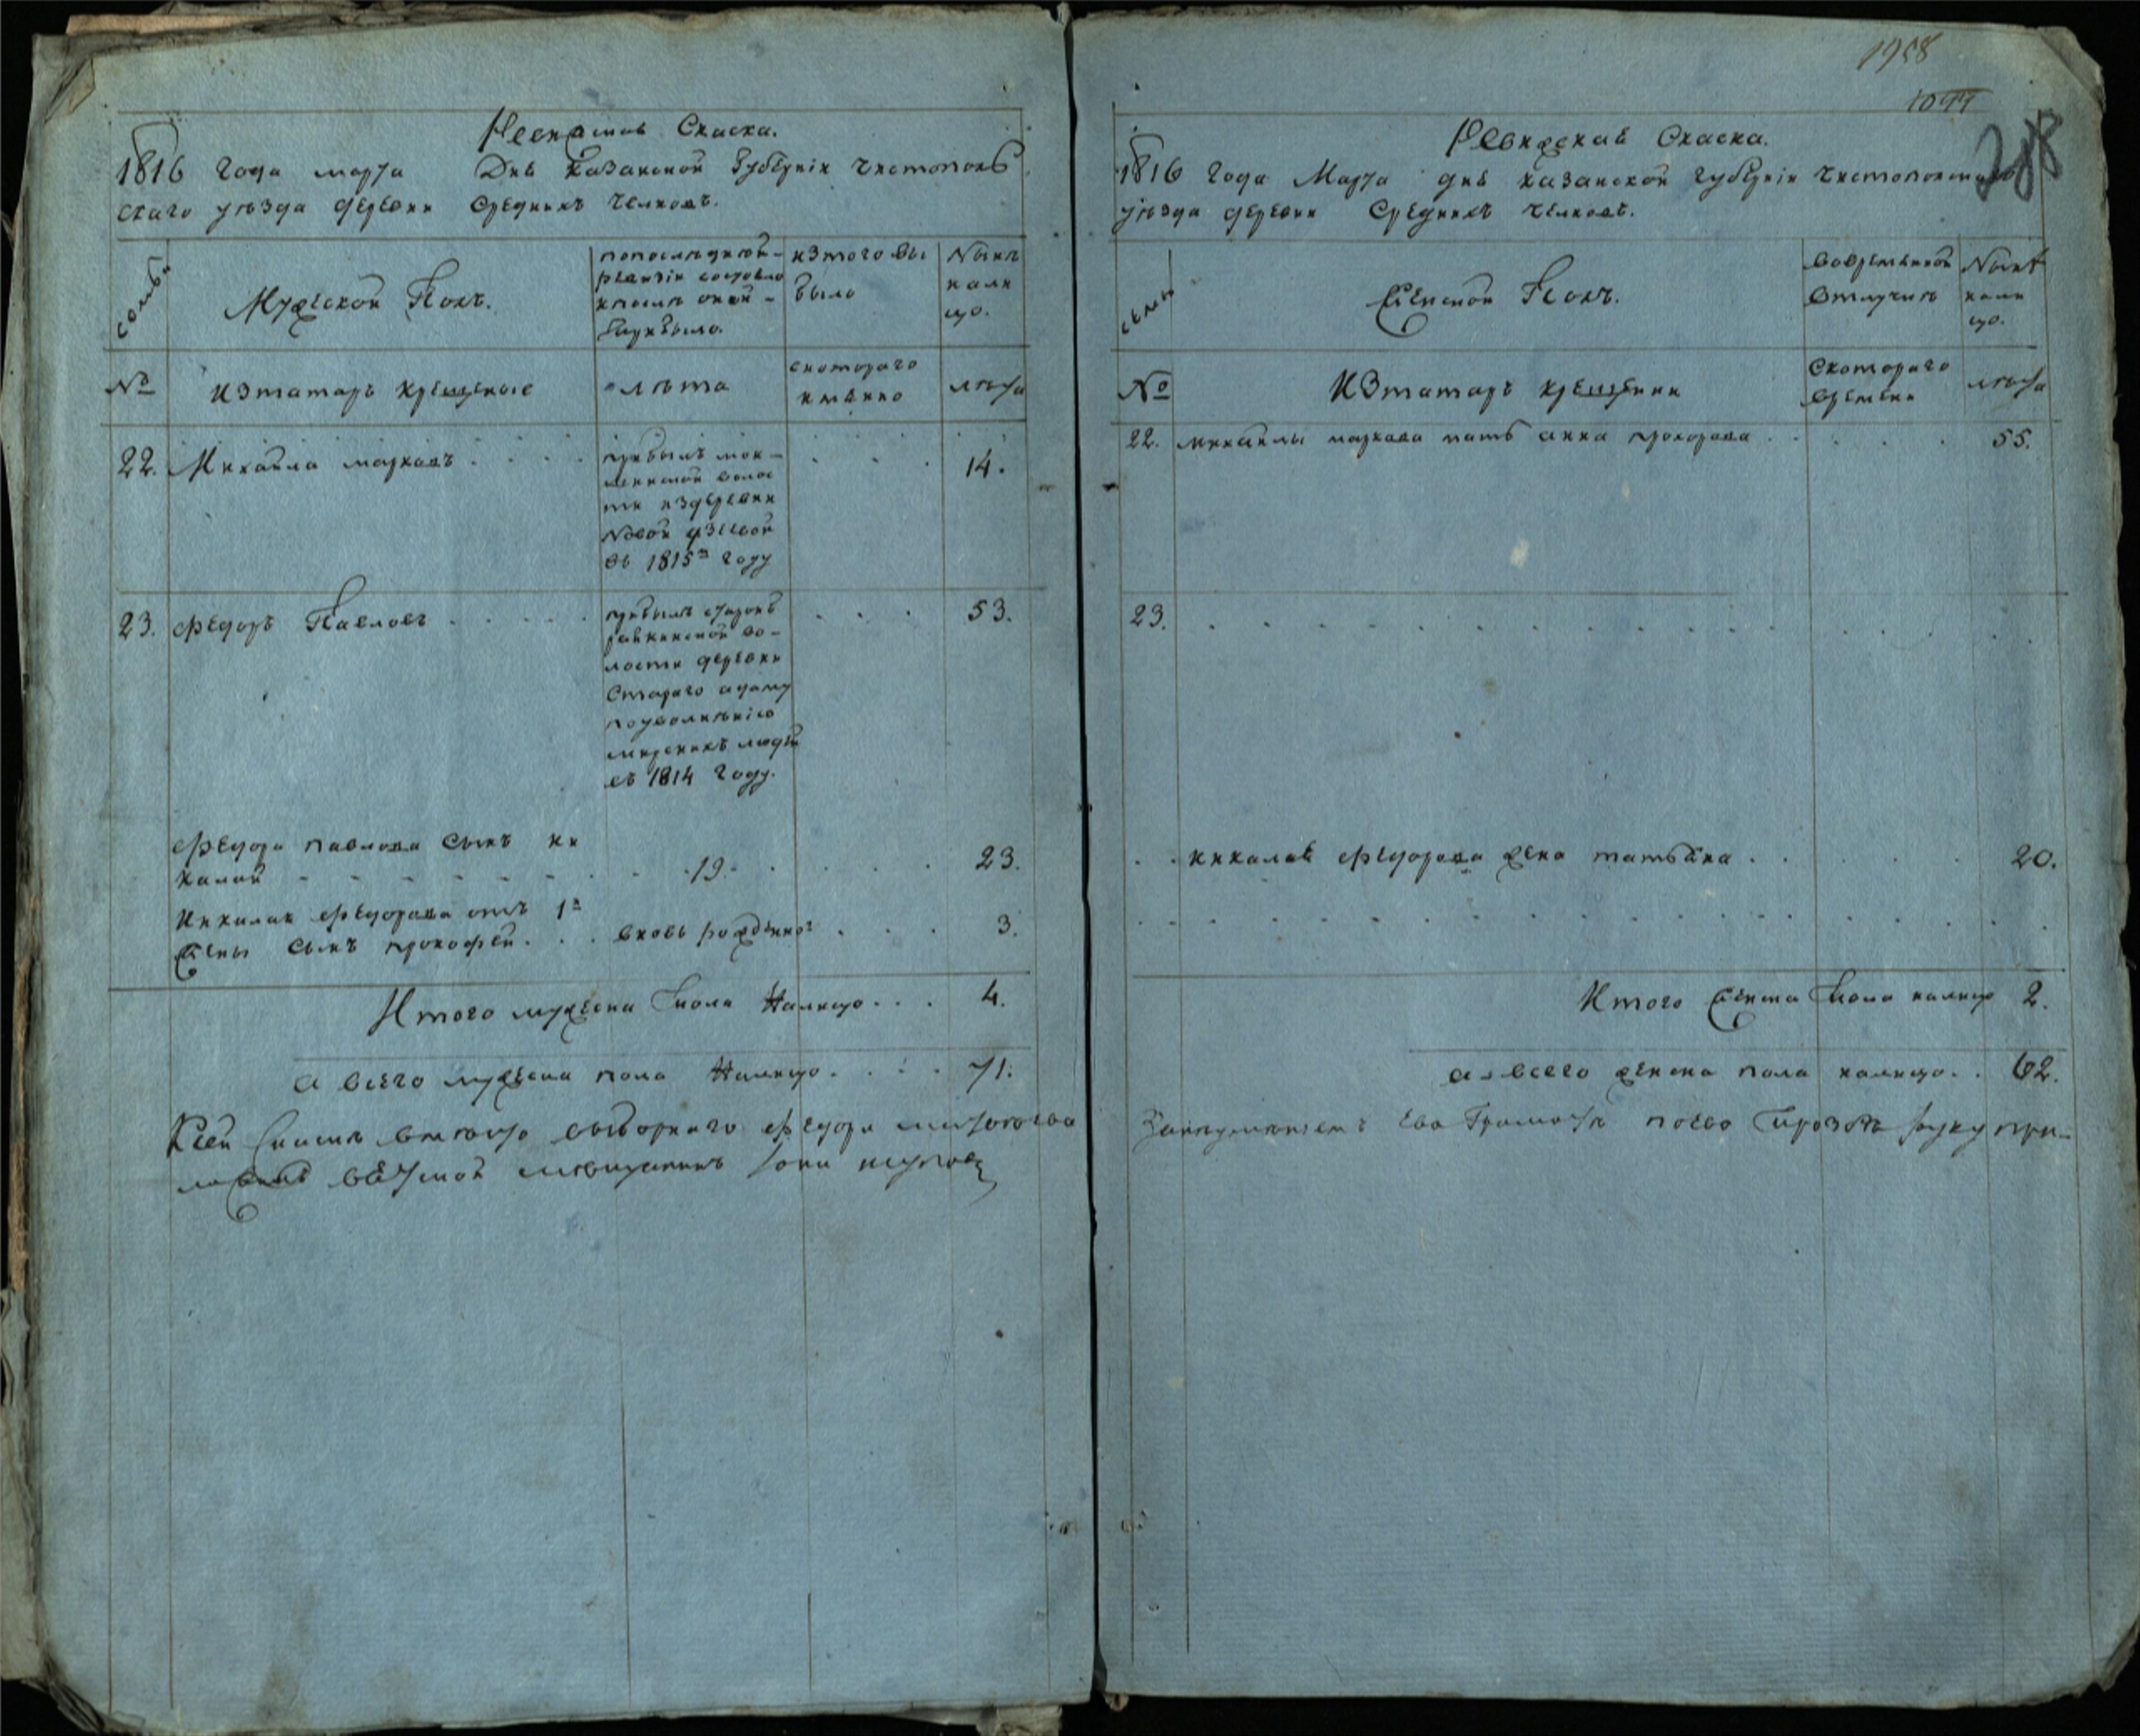 Ревизская Скаска.
1816 года марта Дня Казанской Губернiи Чистополь
скаго уезда деревни Средникъ Челновъ.
семьи
Мужеской Полъ.
попоследней
ревизiи состояло
ипосле оной
прибыло.
изтого вы
было
Ныне
нали
цо.
№
Изтатаръ крещеные
лета
скотораго
имянно
лета
22. Михайла марковъ
прибылъ
волос
ти издеревни
Новой
въ 1815м году
14.
23. Федоръ Павловъ
прибылъ
во-
лости деревни
Стараго адаму
поуволнению
мирскихъ людей
въ 1814 году.
53.
Федора павлова сынъ ни
калай
19.
23.
Никалая Федорова отъ 1й
жены сынъ прокофей
вновь рожденног
3.
Итого мужеска пола Налицо 4.
а всего мужеска пола Налицо 71.
Ксей скаске вместо выборнаго Федора
1958
1044
Ревизская Скаска.
1816 года Марта дня казанской губернiи Чистопольскаго
уезда деревни Средникъ Челновъ.
семьи
Женской Полъ.
вовременной
отлучке
Ныне
нали
цо.
№
Изтатаръ крещенни
Скотораго
времени
лета
22. михайлы маркова мать анна прохорова 55.
23.
никалая федорова жена татьяна 20.
Итого женска пола налицо 2.
а всего женска пола налицо 62.
Занеумениемъ ево Грамоте поево прозбе руку при-